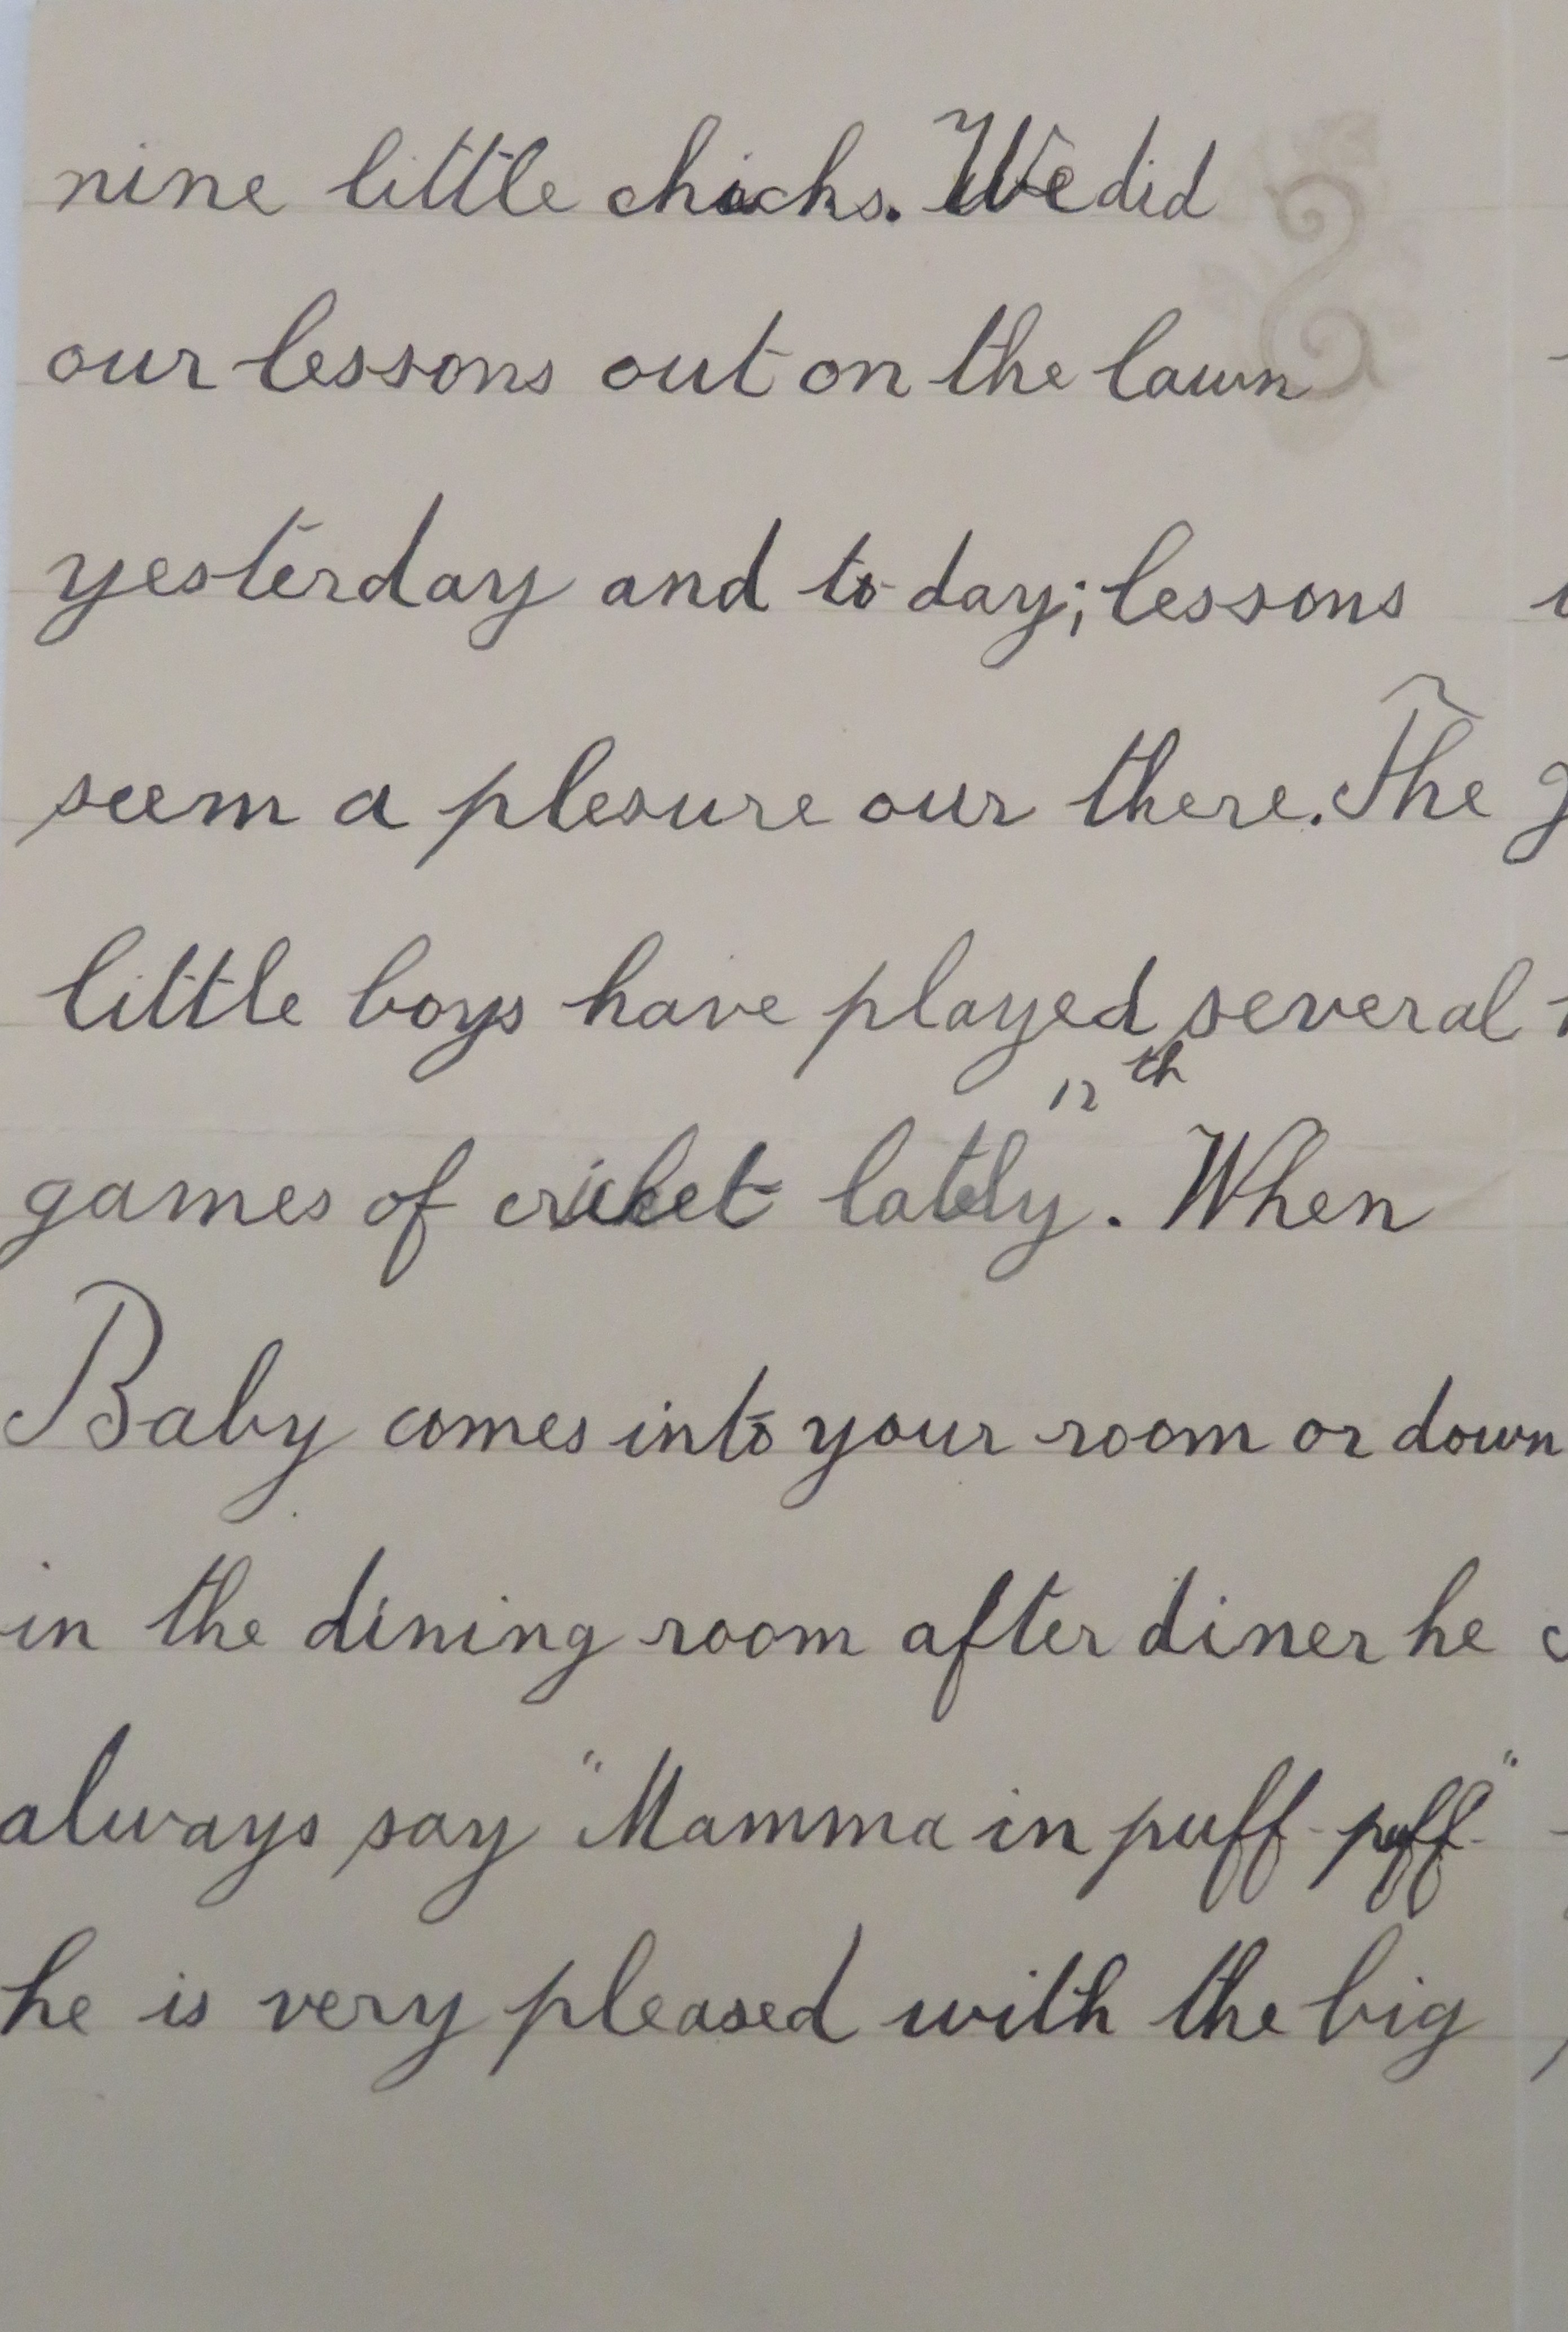 nine little chicks. We did
our lessons out on the lawn
yesterday and to-day; lessons
seem a plesure our there. The
little boys have played several
12th
games of criket lately. When
Baby comes into your room or down
in the dining room after diner he
always say "Mamma in puff-puff"
he is very pleased with the big